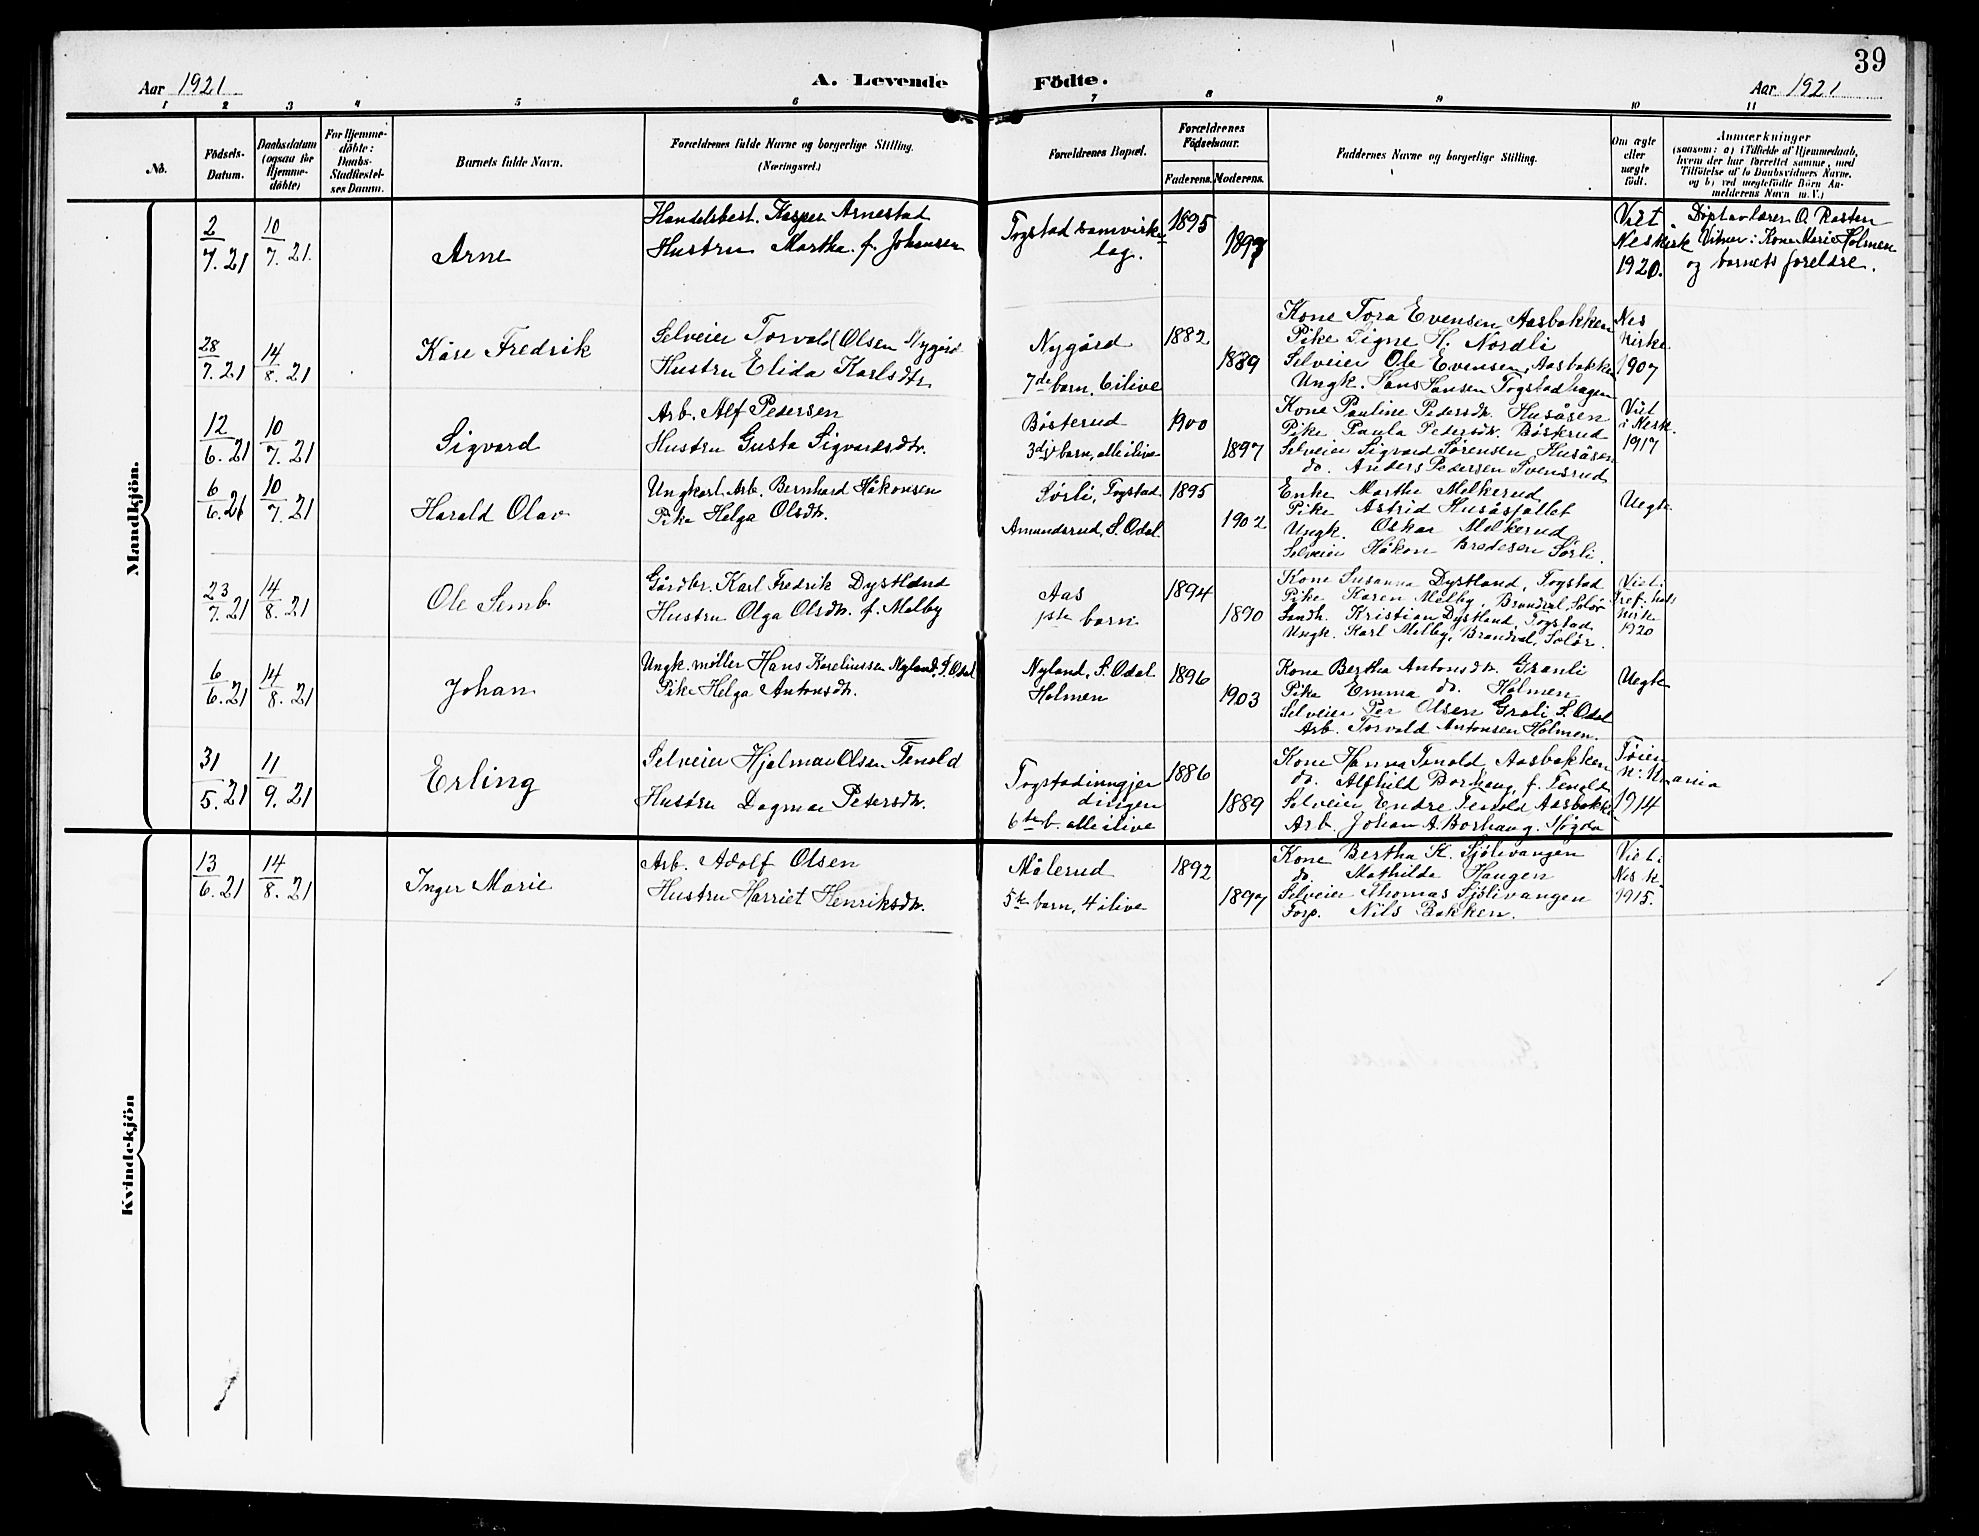 39
Aar 1921
A. Levende
Födte.
Aar 1921
1 2 3 4 5 6 7 8 9 10 11
No.
Födsels-Datum.
Daabsdatum (ogsaa for Hjemme-döbte)
For Hjemme-döbte: Daabs-Stadfæstel-ses Datum.
Barnets fulde Navn.
Forældrenes fulde Navne og borgerlige Stilling.
(Næringsvei.)
Forældrenes Bopæl.
Forældrenes Födselsaar.
Faderens. Moderens.
Faddernes Navne og borgerlige Stilling.
Om ægte eller uægte födt.
Anmærkninger
(saasom: a) i Tilfælde af Hjemmedaab,
hvem der har forrettet samme, med
Tilföielse af to Daabsvidners Navne.
og b) ved uægtefödte Börn An-
melderens Navn m. V.)
Mandkjön.
2/7.21 10/7.21. Arne
Handelsbest. Kasper Arnestad
Hustru Martha f. Johansen
Togstad samvirke-
lag.
1895
1897
Viet
Neskirk
1920.
Døpt av lærer O. Rasten
Vitner: Kone Marie Holmen
og barnets forelære.
28/7.21 14/8.21 Kåre Fredrik
Selveier Torvald Olsen Nygård
Hustru Elida Karlsdtr
Nygård
7de barn. 6 ilive
1882
1889
Kone Tora Evensen Aasbakken
Pike Signe H. Nordli
Selveier Ole Evensen, Aasbakken
Ungk. Hans Hansen Togstadhagen
Nes
kirke
1907
12/6.21 10/7.21 Sigvard
Arb. Alf Pedersen
Hustru Gusta Sigvardsdtr.
Bösterud
3dje barn, alle ilive
1900
1897
Kone Pauline Pedersdtr. Husåsen
Pike Paula Petersdtr. Bösterud
Selveier Sigvard Sörensen, Husåsen
do. Anders Pedersen Svensrud
Viet
i Nesk.
1917
6/6.21 10/7.21 Harald Olav
Ungkarl Arb. Bernhard Håkonsen
Pike Helga Olsdtr.
Sörli, Togstad
Amundsrud, S. Odal.
1895
1902
Enke Marthe Melkerud
Pike Astrid Husåsfallet
Ungk. Oskar Melkerud
Selveier Håkon Bredesen Sörli.
Uegte
23/7.21 14/8.21 Ole Semb
Gårdbr. Karl Fredrik Dystland
Hustru Olga Olsdtr. f. Melby
Aas
1ste barn
1894
1890
Kone Susanna Dystland, Togstad
Pike Karen Melby, Brandval, Solör
Landh. Kristian Dystland, Togstad
Ungk. Karl Melby, Brandval, Solör.
Viet i
kirke
1920
6/6.21 14/8.21 Johan
Ungk. møller Hans Kareliussen Nyland, S. Odal
Pike Helga Antonsdtr.
Nyland, S. Odal
Holmen
1896
1903
Kone Bertha Antonsdtr. Granli
Pike Emma do. Holmen
Selveier Per Olsen Grali S. Odal
Arb. Torvald Antonsen Holmen.
Uegte
31/5.21 11/9.21 Erling
Selveier Hjelmar Olsen Tenold
Hustru Dagmar Petersdtr.
Togstadinngjer
dingen
6te b. alle ilive
1886
1889
Kone Hanna Tenold Aasbakken
do. Alfhild Borhaug, f. Tenold
Selveier Endre Tenold Aasbakken
Arb. Johan A. Borhaug.
Tøien
k. Kr ania
1914
Kvindekjön
13/6.21 14/8.21 Inger Marie
Arb. Adolf Olsen
Hustru Harriet Henriksdtr.
Målerud
5te barn, 4 ilive
1892
1897
Kone Bertha K. Sjölivangen
do. Mathilde Haugen
Selveier Thomas Sjölivangen
Forp. Nils Bakken.
Viet i
Nes k.
1915.